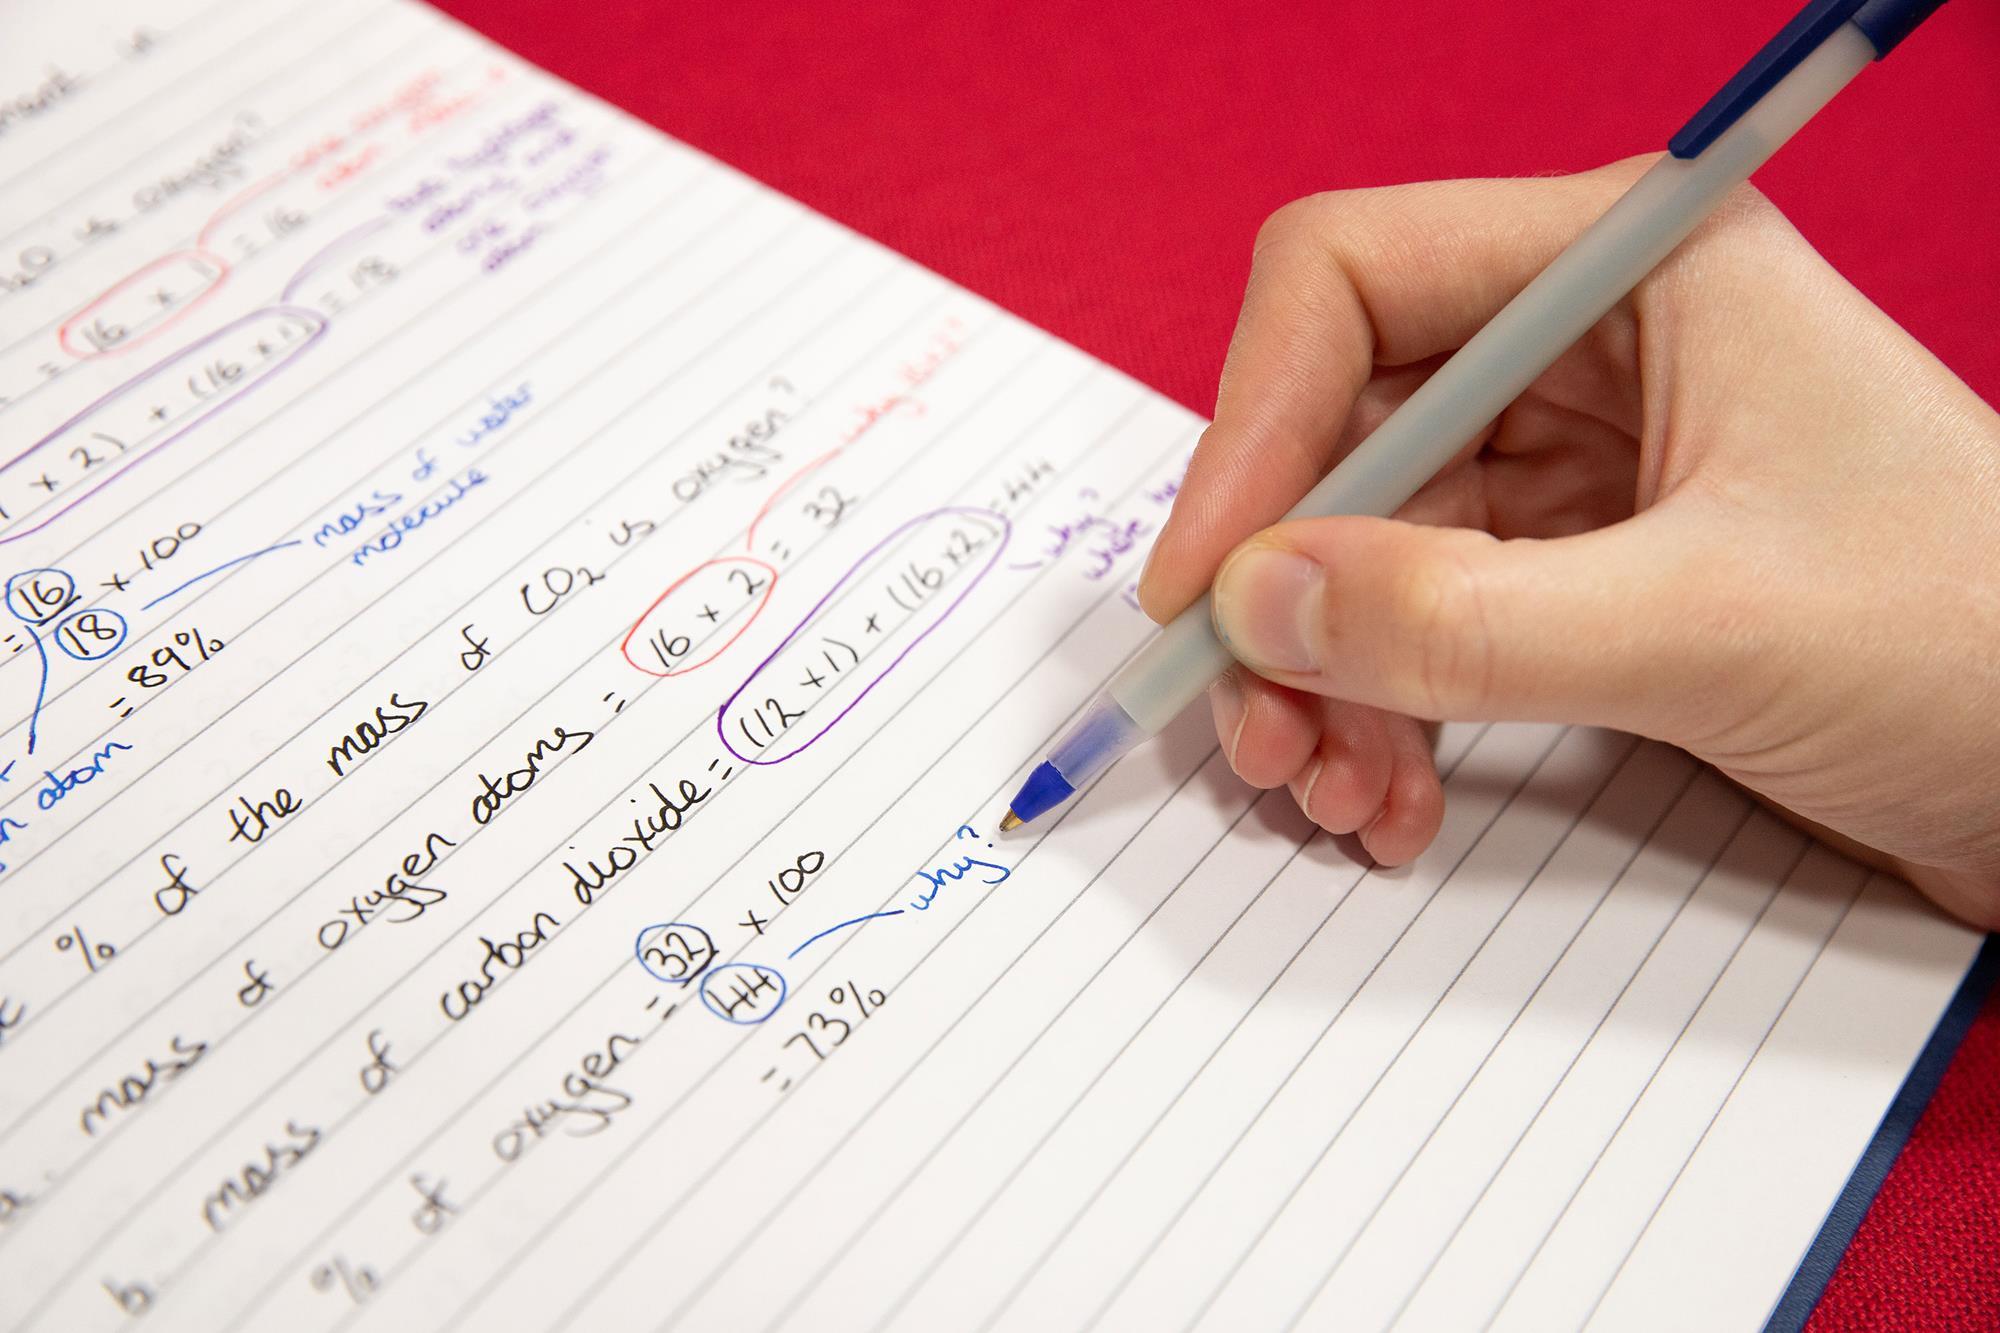 is
H₂O is oxygen?
= 16 x 1 = 16
one oxygen
x 2) + (16 x 1) = 18
two hydrogen
atoms and
one oxygen
atom
= 16/18 x 100
mass of water
molecule
= 89%
atom
% of the mass of CO₂ is oxygen?
a. mass of oxygen atoms = 16 x 2 = 32
why
b. mass of carbon dioxide = (12 x 1) + (16 x 2) = 44
why?
where
% of oxygen = 32/44 x 100
why?
= 73%